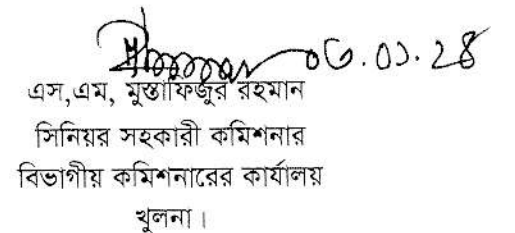 ০৬.০১.২৪
এস,এম, মুস্তাফিজুর রহমান
সিনিয়র সহকারী কমিশনার
বিভাগীয় কমিশনারের কার্যালয়
খুলনা।